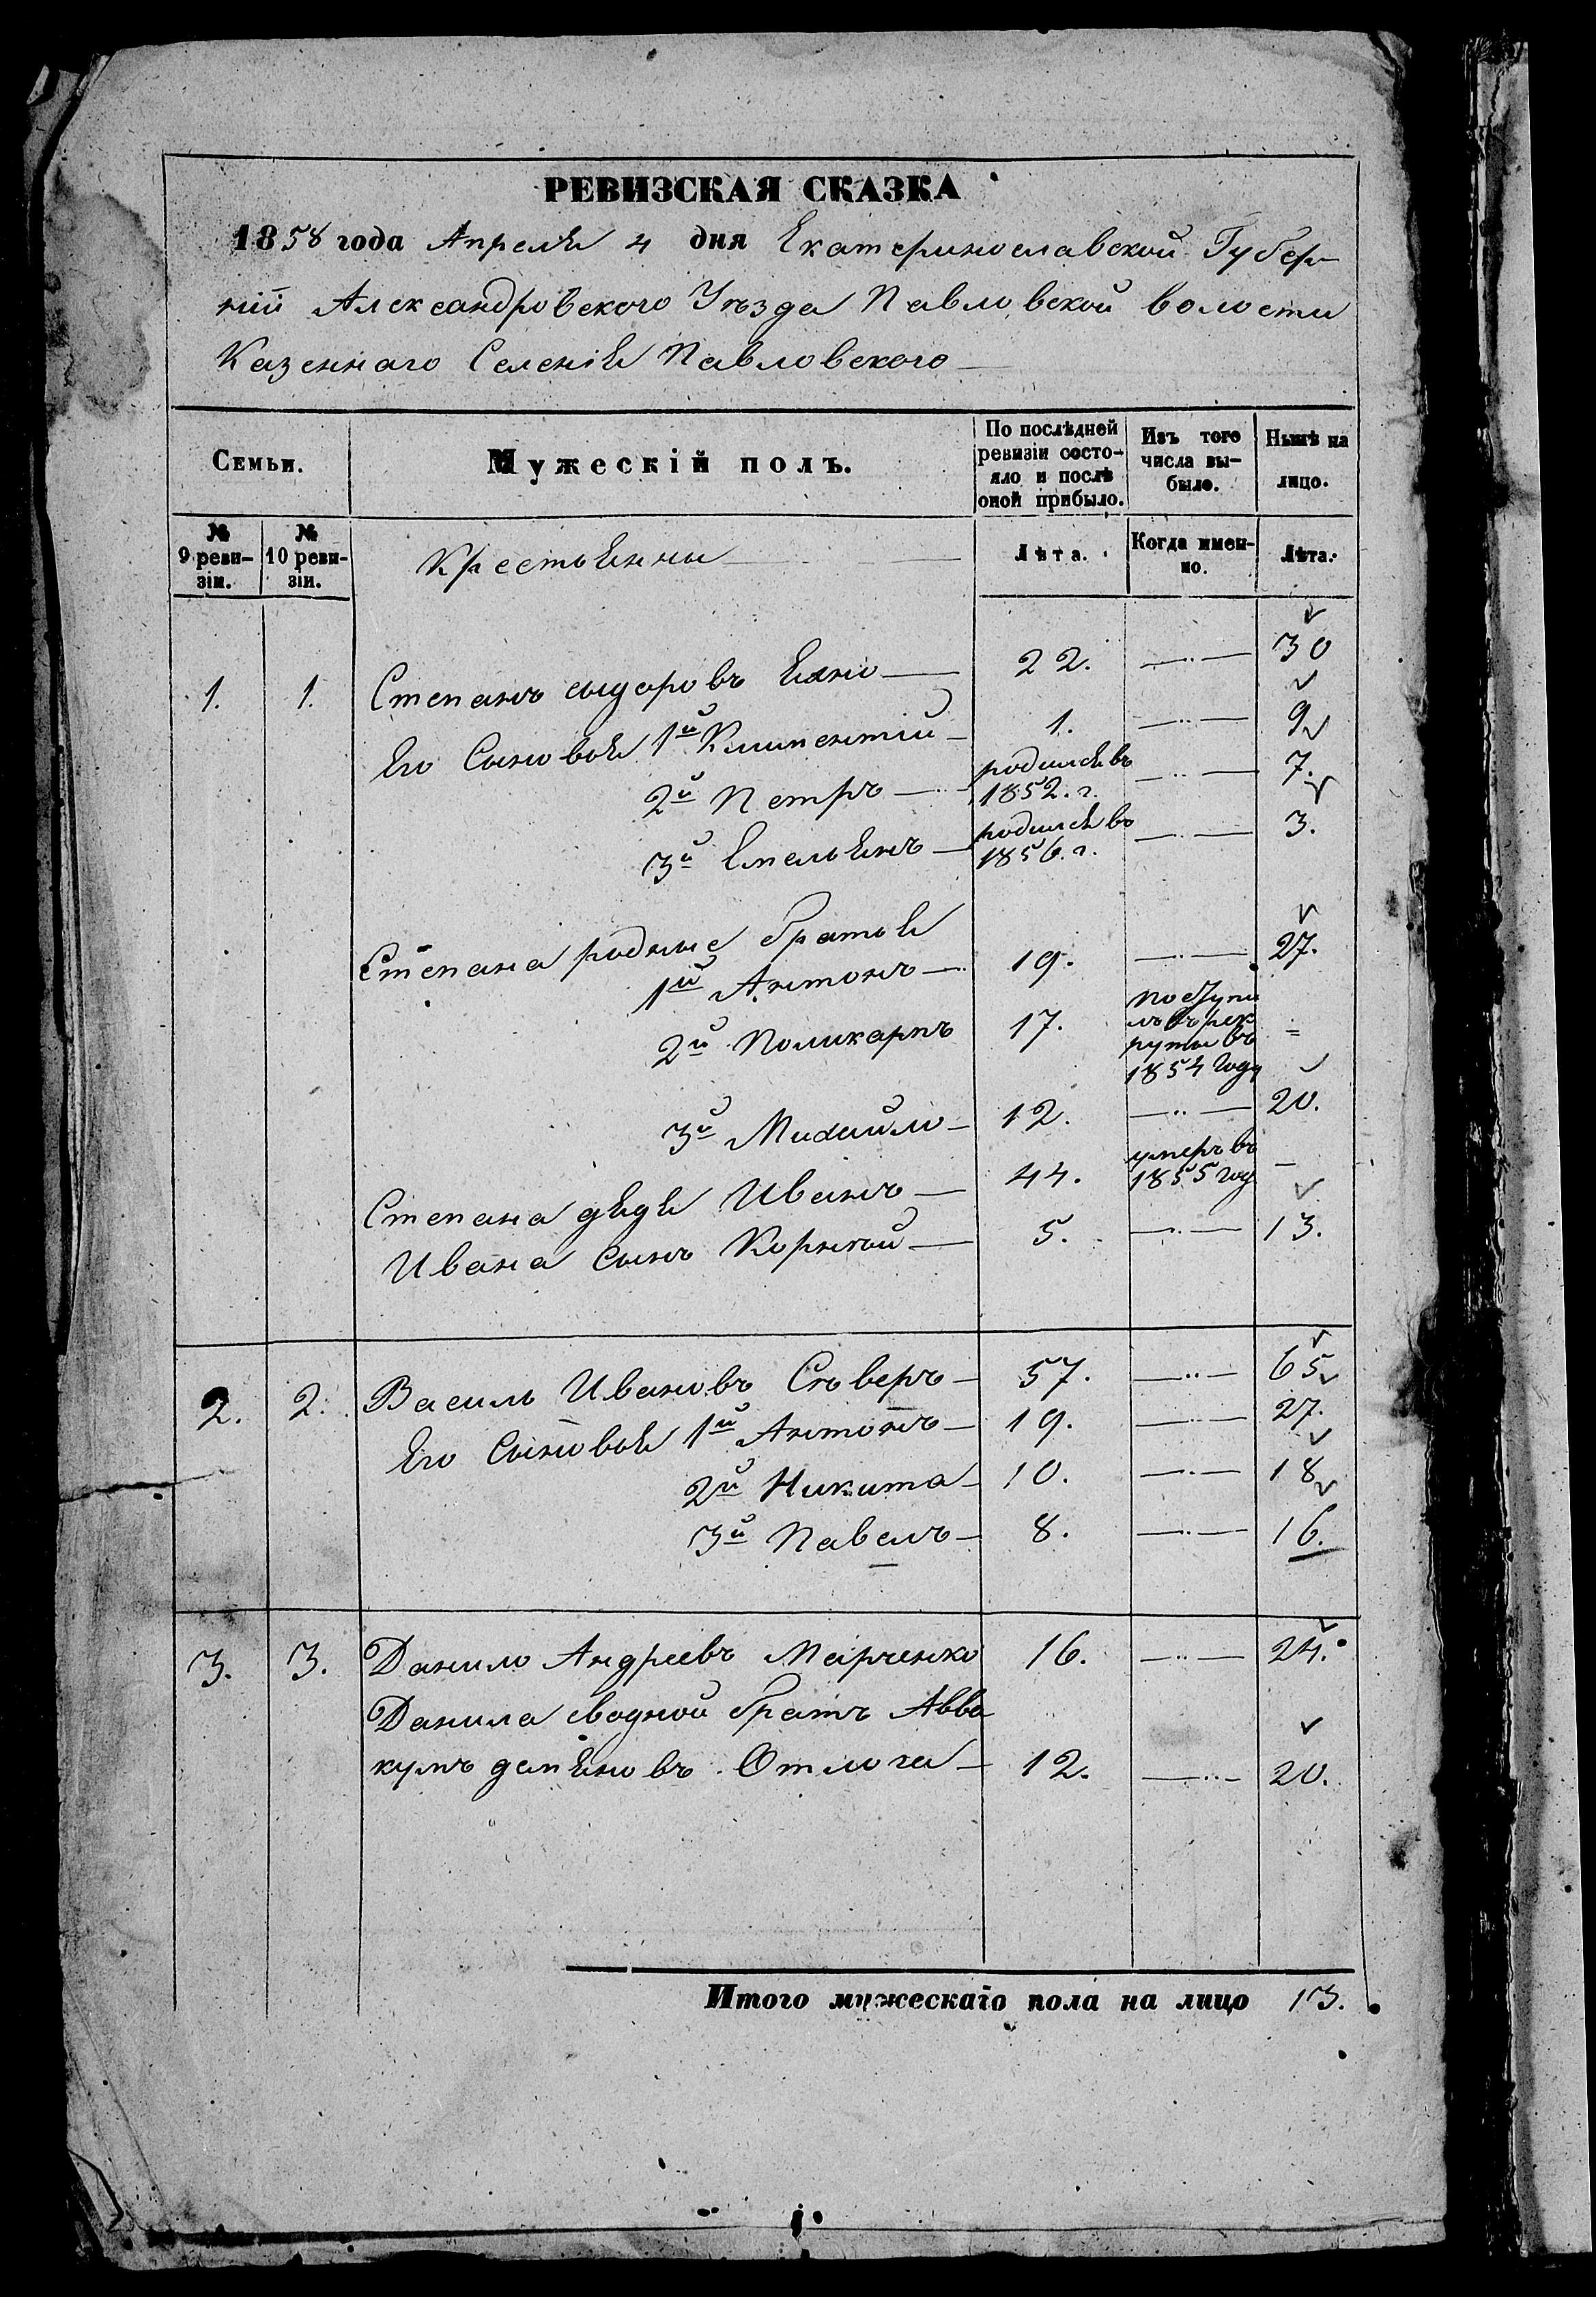 РЕВИЗСКАЯ СКАЗКА
1858 года Апреля 4 дня Екатеринославской Губер-
ній Александровского Уѣзда Павловской волости
Казеннаго Селенія Павловского
Семьи.
Мужескій полъ.
По послѣдней ревизіи состо-яло и послѣ оной прибыло.
Изъ того числа вы-было.
Нынѣ на лицо.
№ 9 реви-зіи.
№ 10 реви-зіи.
Крестьянны
Лѣта.
Когда имен-но.
Лѣта.
1. 1. Степанъ сыдоровъ 22. 30
Его Сыновья 1й Климентій 1. 9
2й Петръ родился въ 1852. г. 7.
3й Емельянъ родился въ 1856. г. 3.
Степана родные братья
1й Антонъ 19. 27.
2й Поликарпъ 17. поступи лъ въ рек руты въ 1854 году =
3й Михайло 12. 20.
Степана дядя Иванъ 44. умеръ въ 1855 году –
Ивана сынъ Корнѣй 5. 13.
2. 2. Василь Ивановъ Сѣверъ 57. 65
Его Сыновья 1й Антонъ 19. 27.
2й Никита 10. 18
3й Павелъ 8. 16.
3. 3. Данило Андреевъ Марченко 16. 24.
Данила сводной братъ Авва
кумъ демяновъ 12. 20.
Итого мужескаго пола на лицо 13.